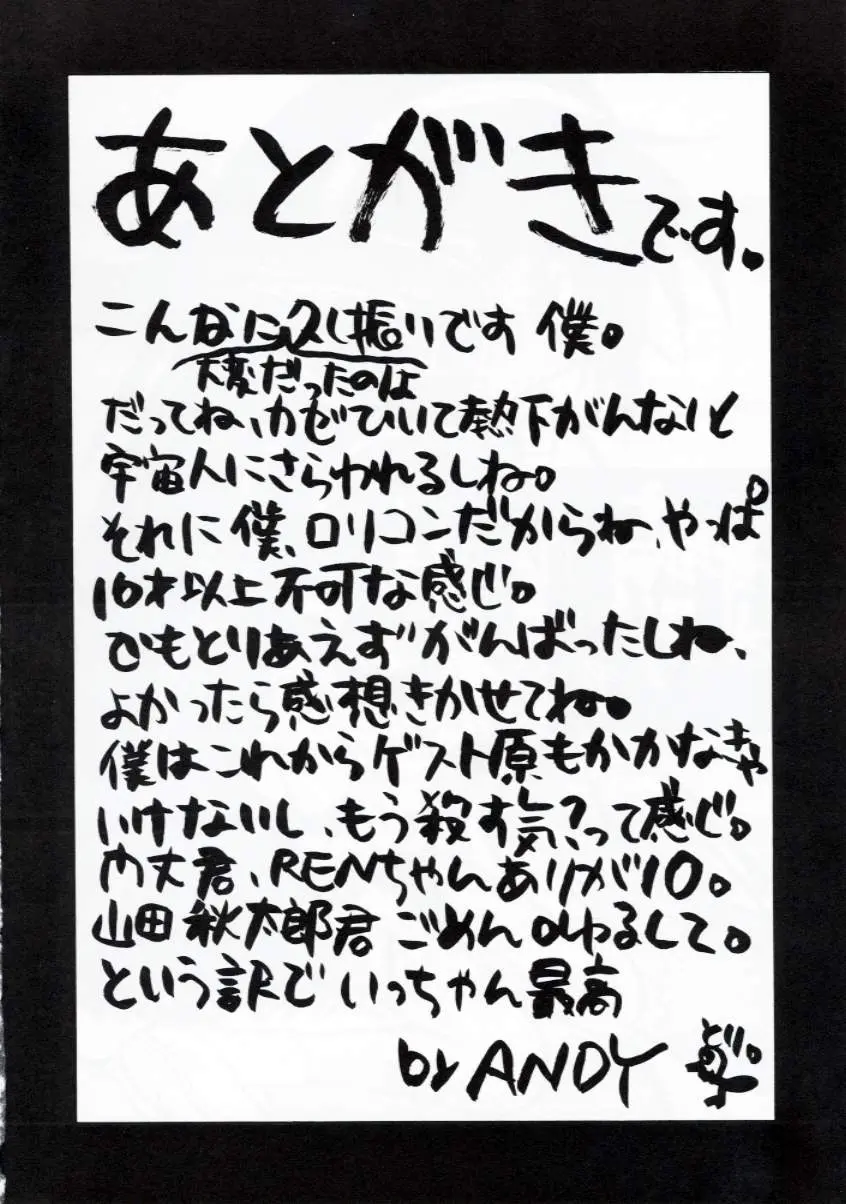 あとがきです。
こんなに久し振りです 僕。
大変だったのは
だってね、カゼひいて熱下がんないと
宇宙人にさらわれるしね。
それに僕、ロリコンだからね、やっぱ
10才以上不可な感じ。
でもとりあえずがんばったしね、
よかったら感想きかせてね。
僕はこれからゲスト原もかかなきゃ
いけないし、もう殺す気?って感じ。
内丈君、RENちゃんありが10。
山田秋太郎君 ごめんゆるして。
という訳で いっちゃん最高
by ANDY